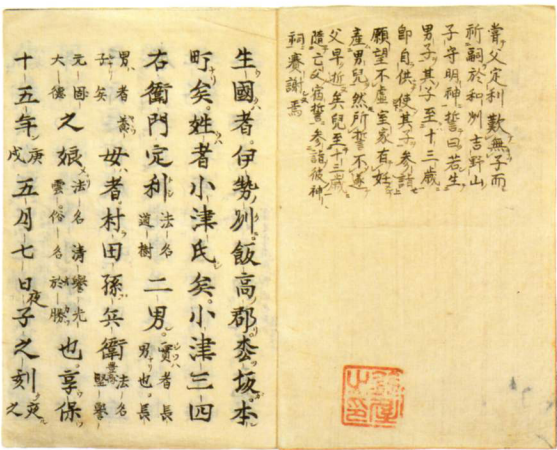 嘗父定利歎無子而
祈嗣於和州吉野山
子守明神誓曰若生
男子其子至十三歳
即自供使其子参詣
願望不虚室家有妊
産男児然所誓不遂
父早逝矣児至十三歳
随亡父宿誓参詣彼神
祠賽謝焉
鈴屋之印
生國者伊勢州飯高郡枩坂本
町矣姓者小津氏矣小津三四
右衛門定利法名道樹二男實者長男也長
男者養子矣母者村田孫兵衛法名堅誉
元固大徳之娘法名清誉光雲俗名於勝也享保
十五年庚戌五月七日夜子之刻